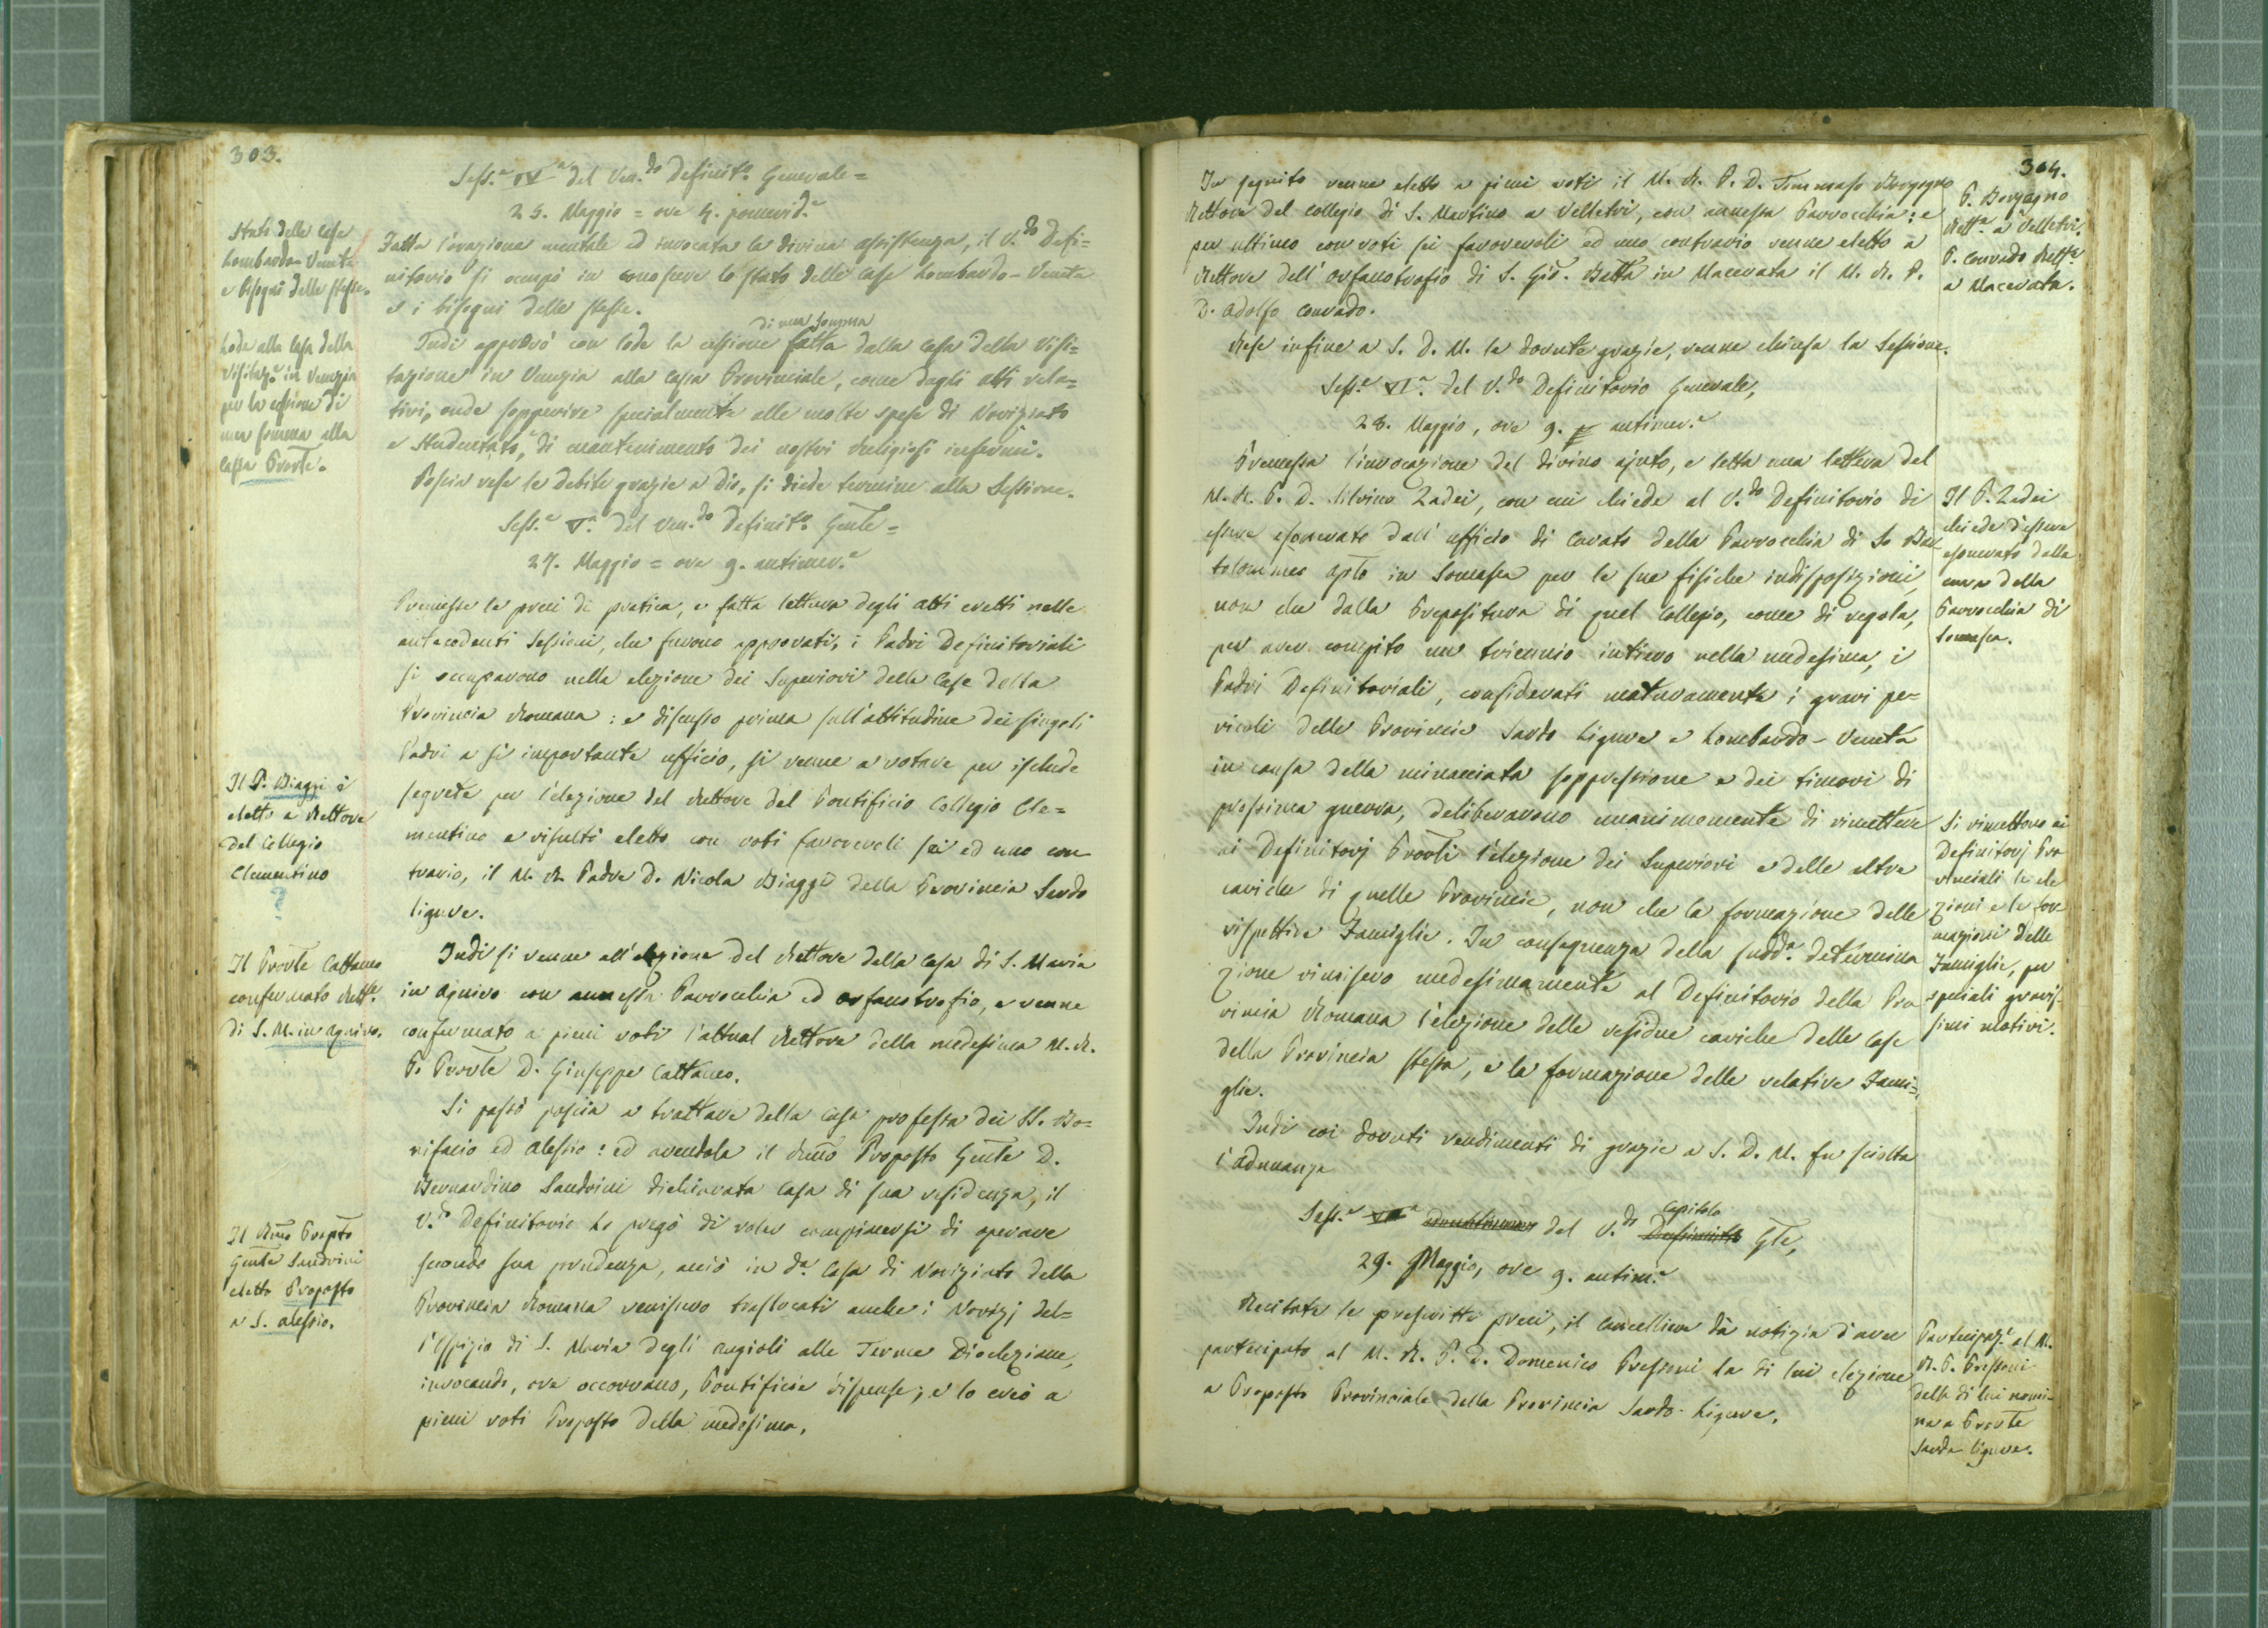 303.
Sess.e IV.a del Ven.do Definit.o Generale =
25. Maggio = ore 4. pomerid.e
Stato delle Case
Lombardo-Venete
e bisogni delle stesse.
Fatta l'orazione mentale ed invocata la divina assistenza, il V.do Defi=
nitorio si occupò in conoscere lo stato delle case Lombardo-Venete
e i bisogni delle stesse.
Lode alla Casa della
Visitaz.e in Venezia
per la cessione di
una somma alla
Cassa Prov̅le.
di una somma
Indi approvò con lode la cessione fatta dalla Casa della Visi=
tazione in Venezia alla Cassa Provinciale, come dagli atti rela=
tivi, onde sopperire specialmente alle molte spese di Noviziato
e Studentato, di mantenimento dei nostri Religiosi infermi.
Poscia rese le debite grazie a Dio, si diede termine alla Sessione.
Sess.e V.a del Ven.do Definit.o Gen̅le =
27. Maggio = ore 9. antimer.e
Premesse le preci di pratica, e fatta lettura degli atti eretti nelle
antecedenti Sessioni, che furono approvati, i Padri Definitoriali
si occuparono nella elezione dei Superiori delle Case della
Provincia Romana: e discusso prima sull'attitudine dei singoli
Padri a sì importante ufficio, si venne a votare per ischede
segrete per l'elezione del Rettore del Pontificio Collegio Cle=
mentino e risultò eletto con voti favorevoli sei ed uno con
trario, il M. R. Padre D. Nicola Biaggi della Provincia Sardo
ligure.
Il P. Biaggi è
eletto a Rettore
del Collegio
Clementino
?
Il Prov̅le Cattaneo
confermato Rett.e
di S. M. in Aquiro.
Indi si venne all'elezione del Rettore della Casa di S. Maria
in Aquiro con annessa Parrocchia ed orfanotrofio, e venne
confermato a pieni voti l'attual Rettore della medesima M. R.
P. Prov̅le D. Giuseppe Cattaneo.
Si passò poscia a trattare della Casa professa dei SS. Bo=
nifacio ed Alessio: ed avendola il Rm̅o Preposto Gen̅le D.
Bernardino Sandrini dichiarata Casa di sua residenza, il
V.do Definitorio lo pregò di voler compiacersi di operare
secondo sua prudenza, acciò in d.a Casa di Noviziato della
Provincia Romana venissero traslocati anche i Novizj del=
l'Ospizio di S. Maria degli Angioli alle Terme Diocleziane,
invocando, ove occorrano, Pontificie dispense; e lo creò a
pieni voti Preposto della medesima.
Il Rm̅o Prep̅to
Gen̅le Sandrini
eletto Preposto
a S. Alessio.
304.
In seguito venne eletto a pieni voti il M. R. P. D. Tommaso Borgogno
Rettore del collegio di S. Martino a Velletri, con annessa Parrocchia: e
per ultimo con voti sei favorevoli ed uno contrario venne eletto a
Rettore dell'orfanotrofio di S. Gio. Batta in Macerata il M. R. P.
D. Adolfo Conrado.
P. Borgogno
Rett.e a Velletri.
P. Conrado Rett.e
a Macerata.
Rese infine a S. D. M. le dovute grazie, venne chiusa la Sessione.
Sess.e VI.a del V.do Definitorio Generale,
28. Maggio, ore 9. antimer.e
Premessa l'invocazione del divino ajuto, e letta una lettera del
M. R. P. D. Silvino Zadei, con cui chiede al V.do Definitorio di
essere esonerato dall'ufficio di Curato della Parrocchia di S. Bar
tolommeo Ap̅lo in Somasca per le sue fisiche indisposizioni,
non che dalla Prepositura di quel Collegio, come di regola,
per aver compito un triennio intiero nella medesima, i
Padri Definitoriali, considerati maturamente i gravi pe=
ricoli delle Provincie Sardo Ligure e Lombardo-Veneta
in causa della minacciata soppressione e dei timori di
prossima guerra, deliberarono unanimemente di rimettere
ai Definitorj Prov̅li l'elezione dei Superiori e delle altre
cariche di quelle Provincie, non che la formazione delle
rispettive Famiglie. In conseguenza della sudd.a determina
zione rimisero medesimamente al Definitorio della Pro
vincia Romana l'elezione delle residue cariche delle Case
della Provincia stessa, e la formazione delle relative Fami=
glie.
Il P. Zadei
chiede d'essere
esonerato dalla
cura della
Parrocchia di
Somasca.
Si rimettono ai
Definitorj Pro
vinciali le ele
zioni e le for
mazioni delle
Famiglie, per
speciali gravis-
simi motivi.
Indi coi dovuti rendimenti di grazie a S. D. M. fu sciolta
l'adunanza
Capitolo
Sess.e del V.do Definito G̅le,
29. Maggio, ore 9. antim.e
Recitate le prescritte preci, il Cancelliere dà notizia d'aver
partecipato al M. R. P. D. Domenico Pressoni la di lui elezione
a Preposto Provinciale della Provincia Sardo-Ligure.
Partecipaz.e al M.
R. P. Pressoni
della di lui nomi-
na a Prov̅le
Sardo ligure.